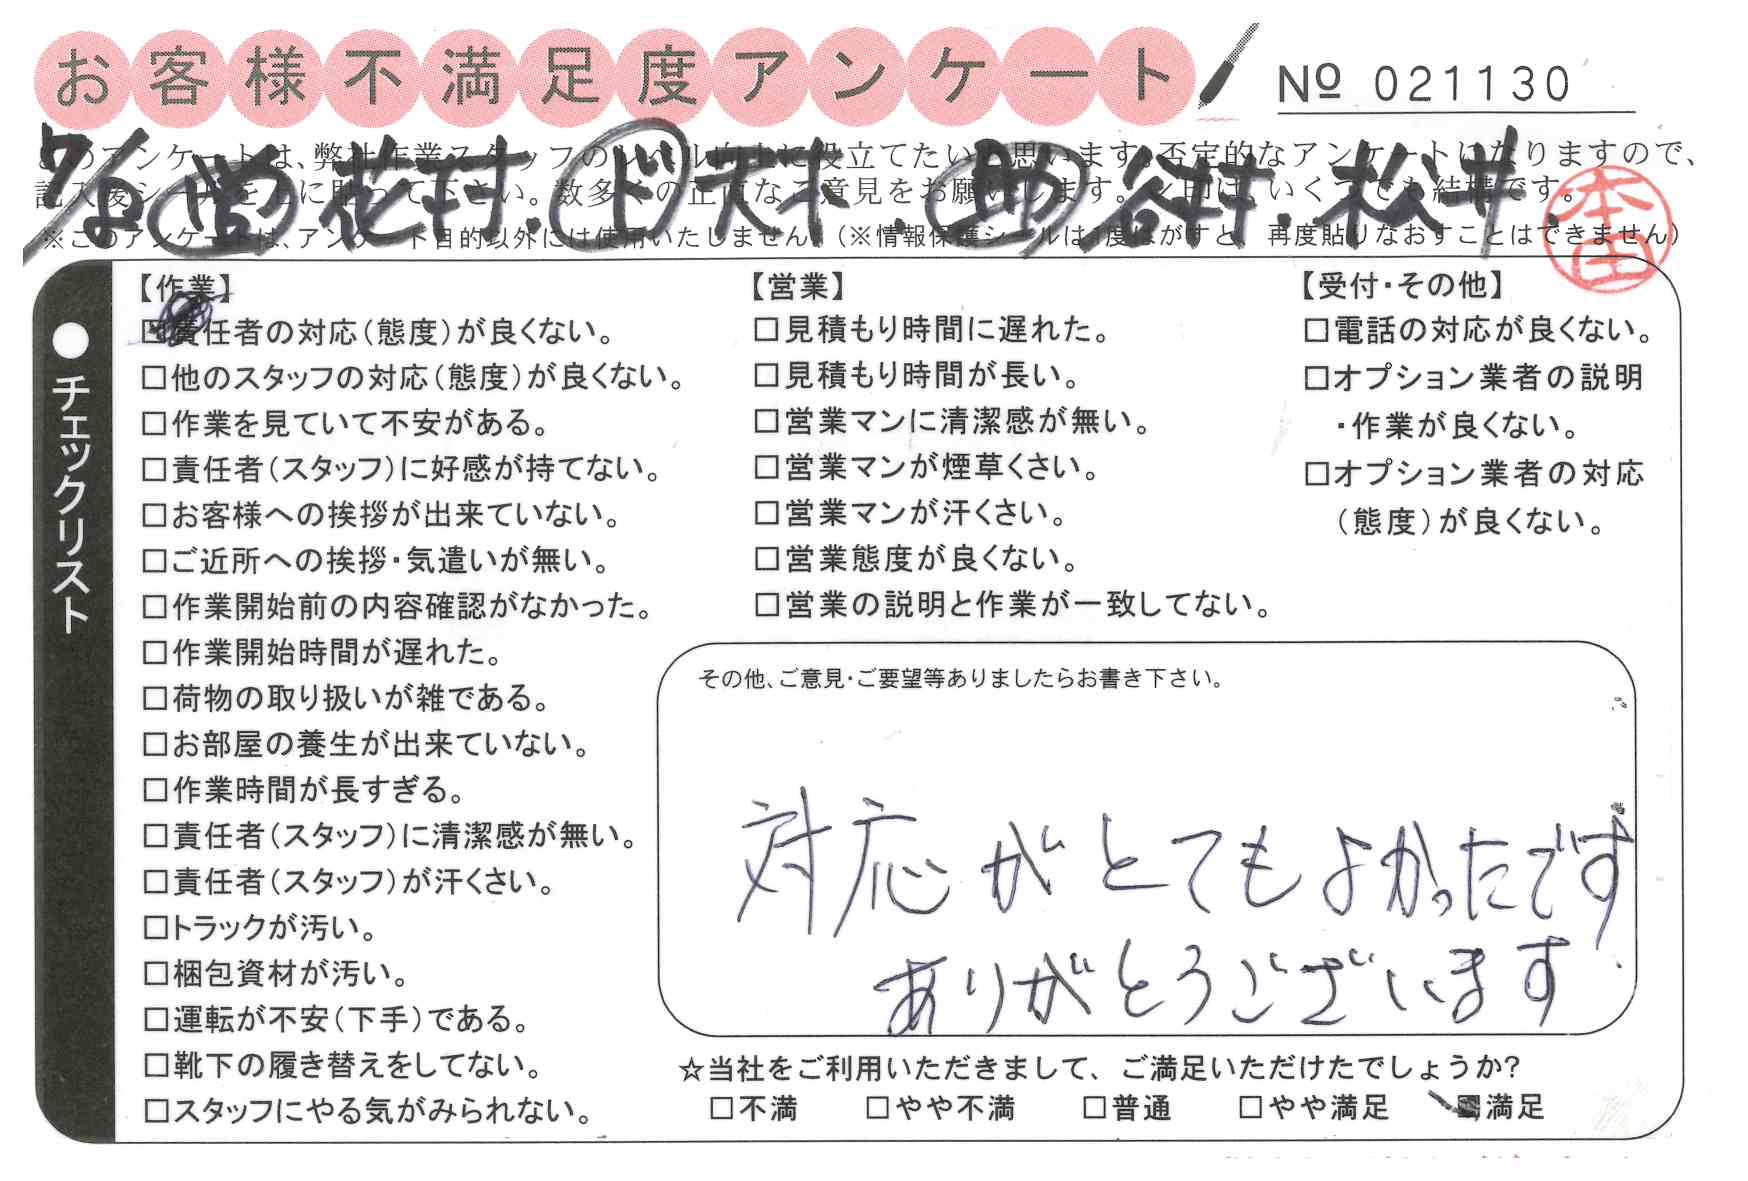 お客様不満足度アンケート
Nº 021130
このアンケートは、弊社作業スタッフのレベル向上に役立てたいと思います。否定的なアンケートになりますので、
記入後シールを上に貼って下さい。数多くの正直なご意見をお願いします。✓印は、いくつでも結構です。
7/12 営 花村. ド 天木. 助 谷村. 松井.
本田
※このアンケートは、アンケート目的以外には使用いたしません。(※情報保護シールは1度はがすと、再度貼りなおすことはできません)
チェックリスト
【作業】
□責任者の対応(態度)が良くない。
□他のスタッフの対応(態度)が良くない。
□作業を見ていて不安がある。
□責任者(スタッフ)に好感が持てない。
□お客様への挨拶が出来ていない。
□ご近所への挨拶・気遣いが無い。
□作業開始前の内容確認がなかった。
□作業開始時間が遅れた。
□荷物の取り扱いが雑である。
□お部屋の養生が出来ていない。
□作業時間が長すぎる。
□責任者(スタッフ)に清潔感が無い。
□責任者(スタッフ)が汗くさい。
□トラックが汚い。
□梱包資材が汚い。
□運転が不安(下手)である。
□靴下の履き替えをしてない。
□スタッフにやる気がみられない。
【営業】
□見積もり時間に遅れた。
□見積もり時間が長い。
□営業マンに清潔感が無い。
□営業マンが煙草くさい。
□営業マンが汗くさい。
□営業態度が良くない。
□営業の説明と作業が一致してない。
【受付・その他】
□電話の対応が良くない。
□オプション業者の説明
・作業が良くない。
□オプション業者の対応
(態度)が良くない。
その他、ご意見・ご要望等ありましたらお書き下さい。
対応がとてもよかったです
ありがとうございます
☆当社をご利用いただきまして、ご満足いただけたでしょうか?
□不満 □やや不満 □普通 □やや満足 ■満足